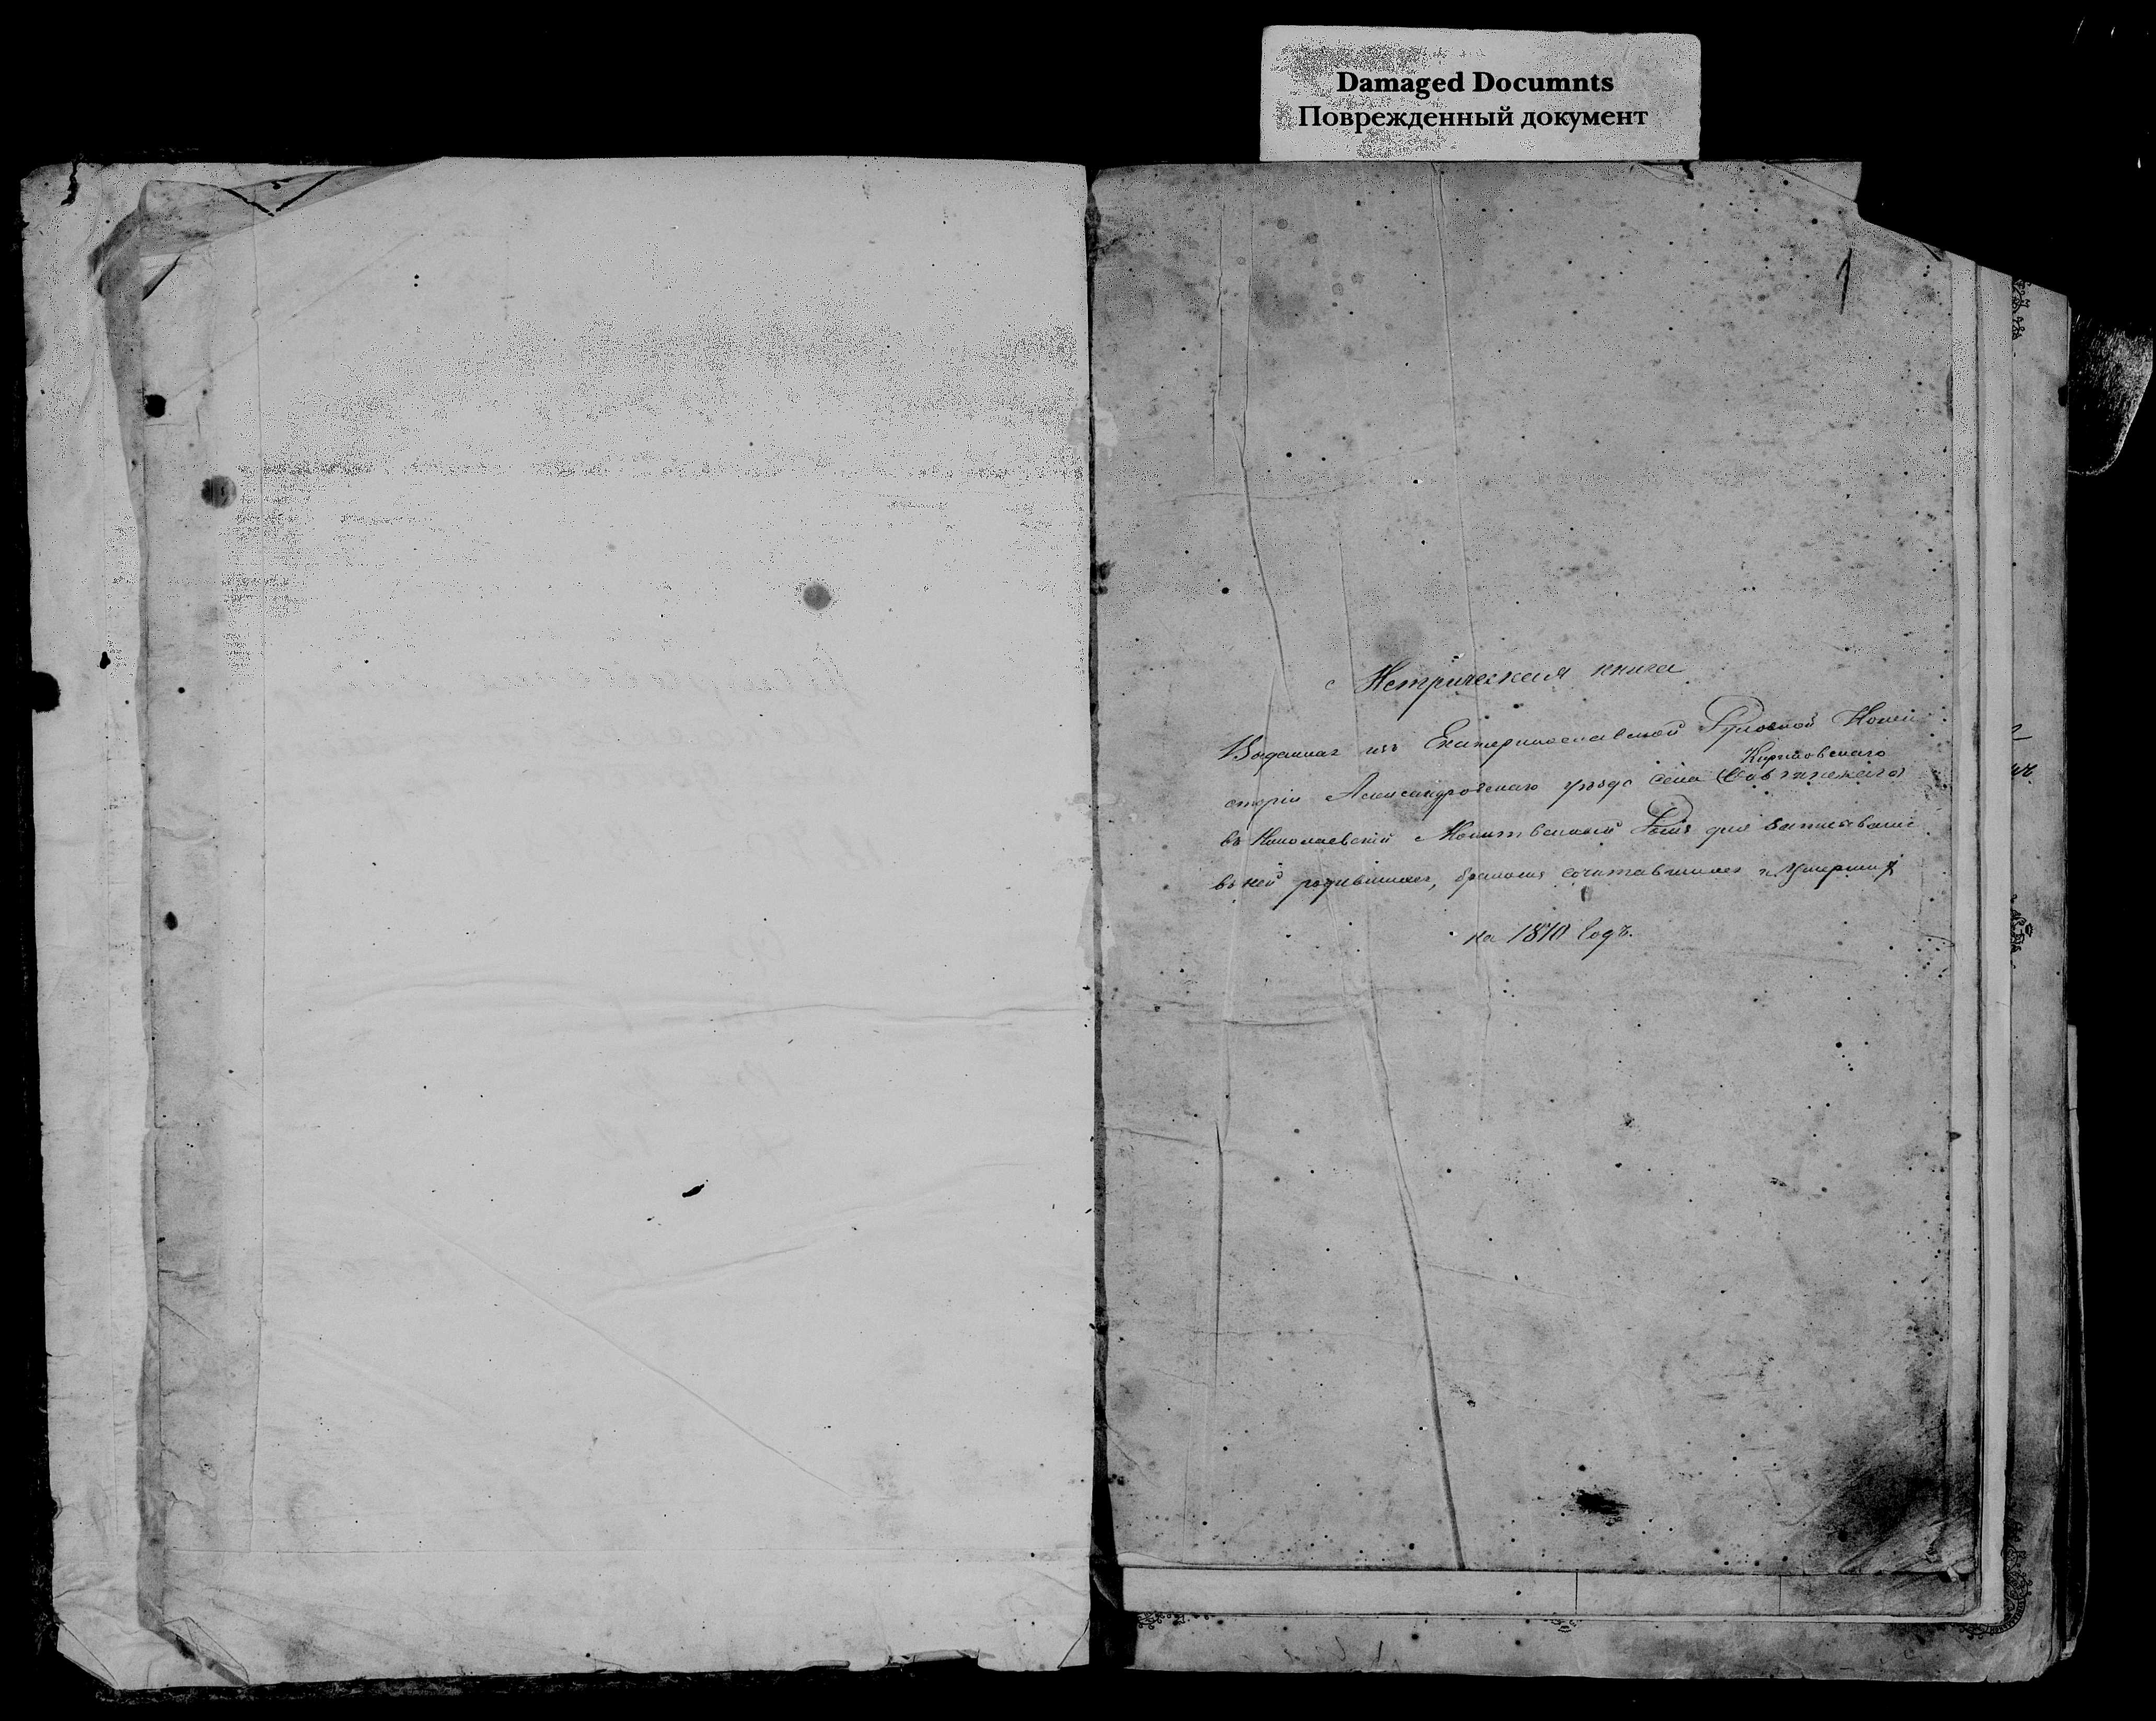 Damaged Documnts
Поврежденный документ
1
Метрическая книга
Выданная изъ Екатеринославской Духовной Конси
Кириловскаго
сторіи Александровскаго уѣзда села
въ Николаевскій Молитвенный Домъ для записыванія
въ ней родившихся, бракомъ сочетавшихся и умершихъ
на 1870 годъ.